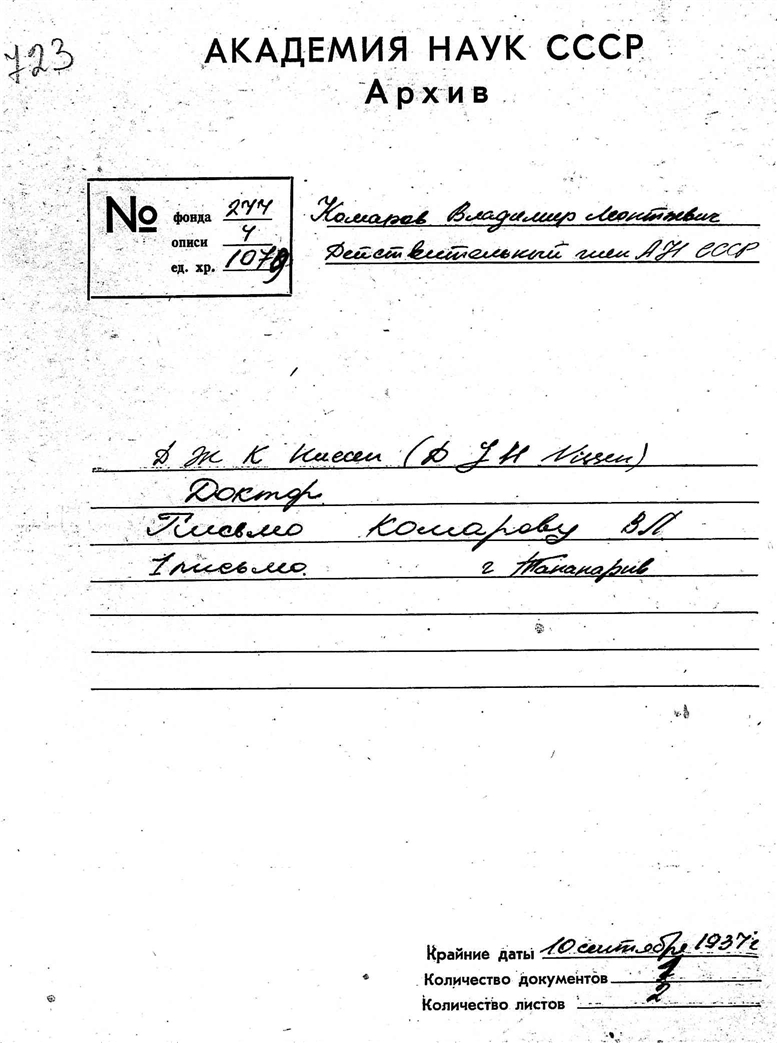 723
АКАДЕМИЯ НАУК СССР
Архив
№ фонда 277
описи 4
ед. хр. 1079
Комаров Владимир Леонтьевич
Действительный член АН СССР
Д Ж К Ниссен (D J H Nissen)
Доктор.
Письмо Комарову ВЛ
1 письмо. г Тананарив
Крайние даты 10 сентября 1937 г
Количество документов 1
Количество листов 2